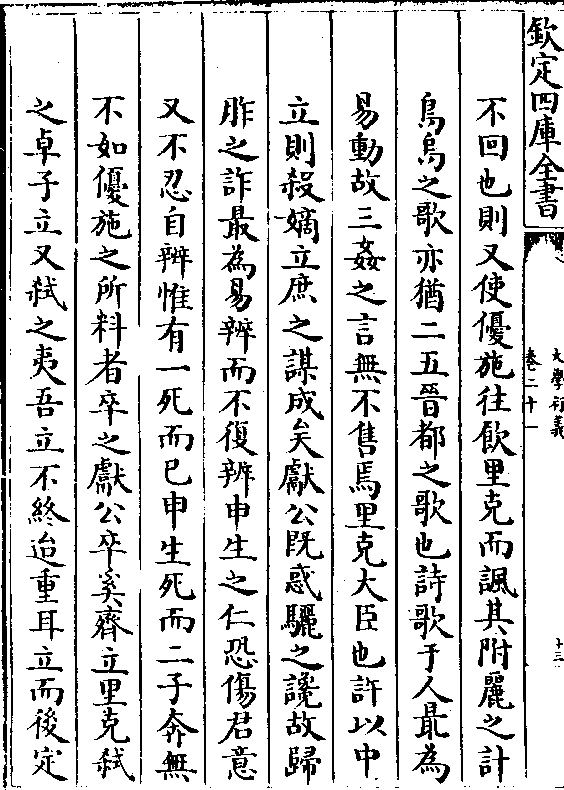 欽定四庫全書
大學衍義
卷二十一
十三
不回也則又使優施往飲里克而諷其附麗之計
鳥烏之歌亦猶二五晉都之歌也詩歌于人最為
易動故三姦之言無不售焉里克大臣也許以中
立則殺嫡立庶之謀成矣獻公既惑驪之讒故歸
胙之詐最為易辨而不復辨申生之仁恐傷君意
又不忍自辨惟有一死而已申生死而二子奔無
不如優施之所料者卒之獻公卒奚齊立里克弑
之卓子立又弑之夷吾立不終迨重耳立而後定